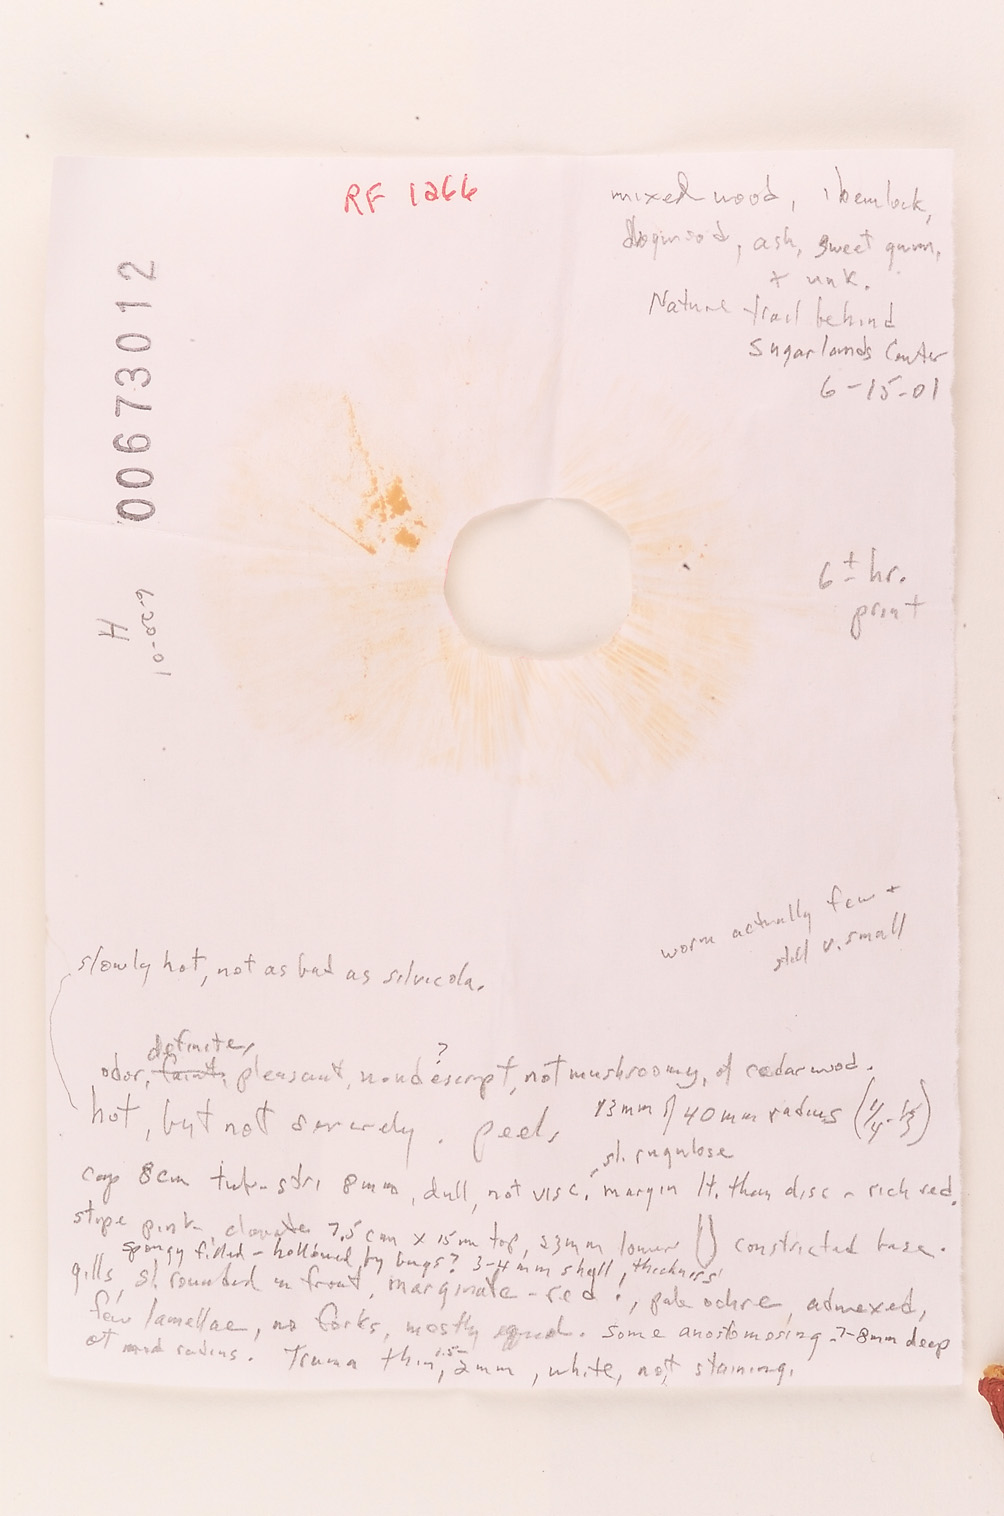 RF 1266
mixed wood, hemlock,
dogwood, ash, sweet gum,
+ unk.
Nature trail behind
Sugarlands Center
6-15-01
00673012
H
6-30-01
6 ± hr.
print
worm actually few +
still v. small
slowly hot, not as bad as silvicola.
definite,
odor, faint, pleasant, nondescript, ? not mushroomy, of cedar wood.
hot, but not severely. peels 13mm of 40mm radius (1/4-1/3)
sl. rugulose
cap 8cm tub-stri 8mm, dull, not visc. margin lt. than disc - rich red.
stipe pink, clavate 7.5cm x 15mm top, 23mm lower constricted base.
spongy filled - hollowed by bugs? 3-4mm shell, thickness
gills, sl. rounded in front, marginate - red, pale ochre, adnexed,
few lamellae, no forks, mostly equal. some anastomosing 7-8mm deep
at mid radius. Trama thin, 1.5-2mm, white, not staining.